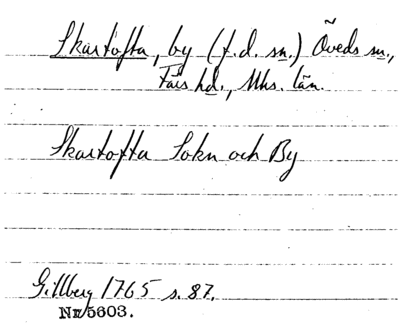 Skartofta, by (f.d. sn.) Öveds sn.,
Färs hd., Mhs. län.
Skartofta Sokn och By
Gillberg 1765 s. 87.
Nr 5603.